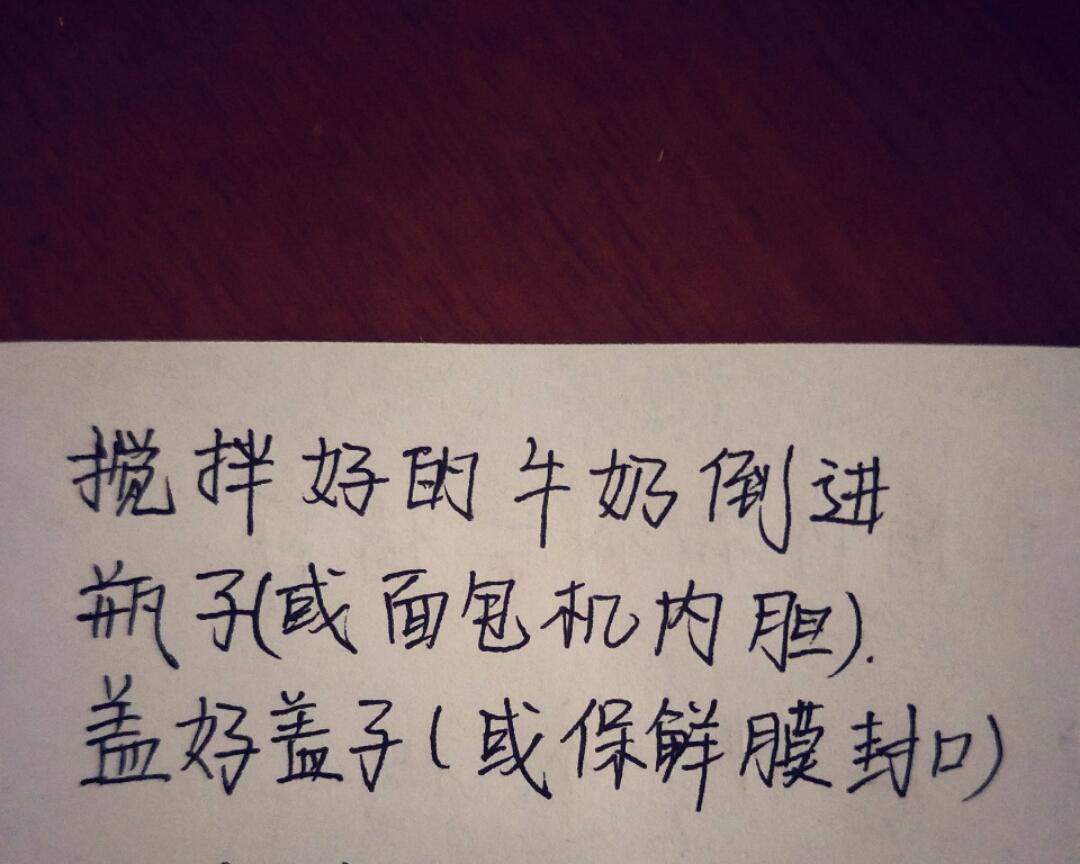 搅拌好的牛奶倒进
瓶子(或面包机内胆).
盖好盖子(或保鲜膜封口)